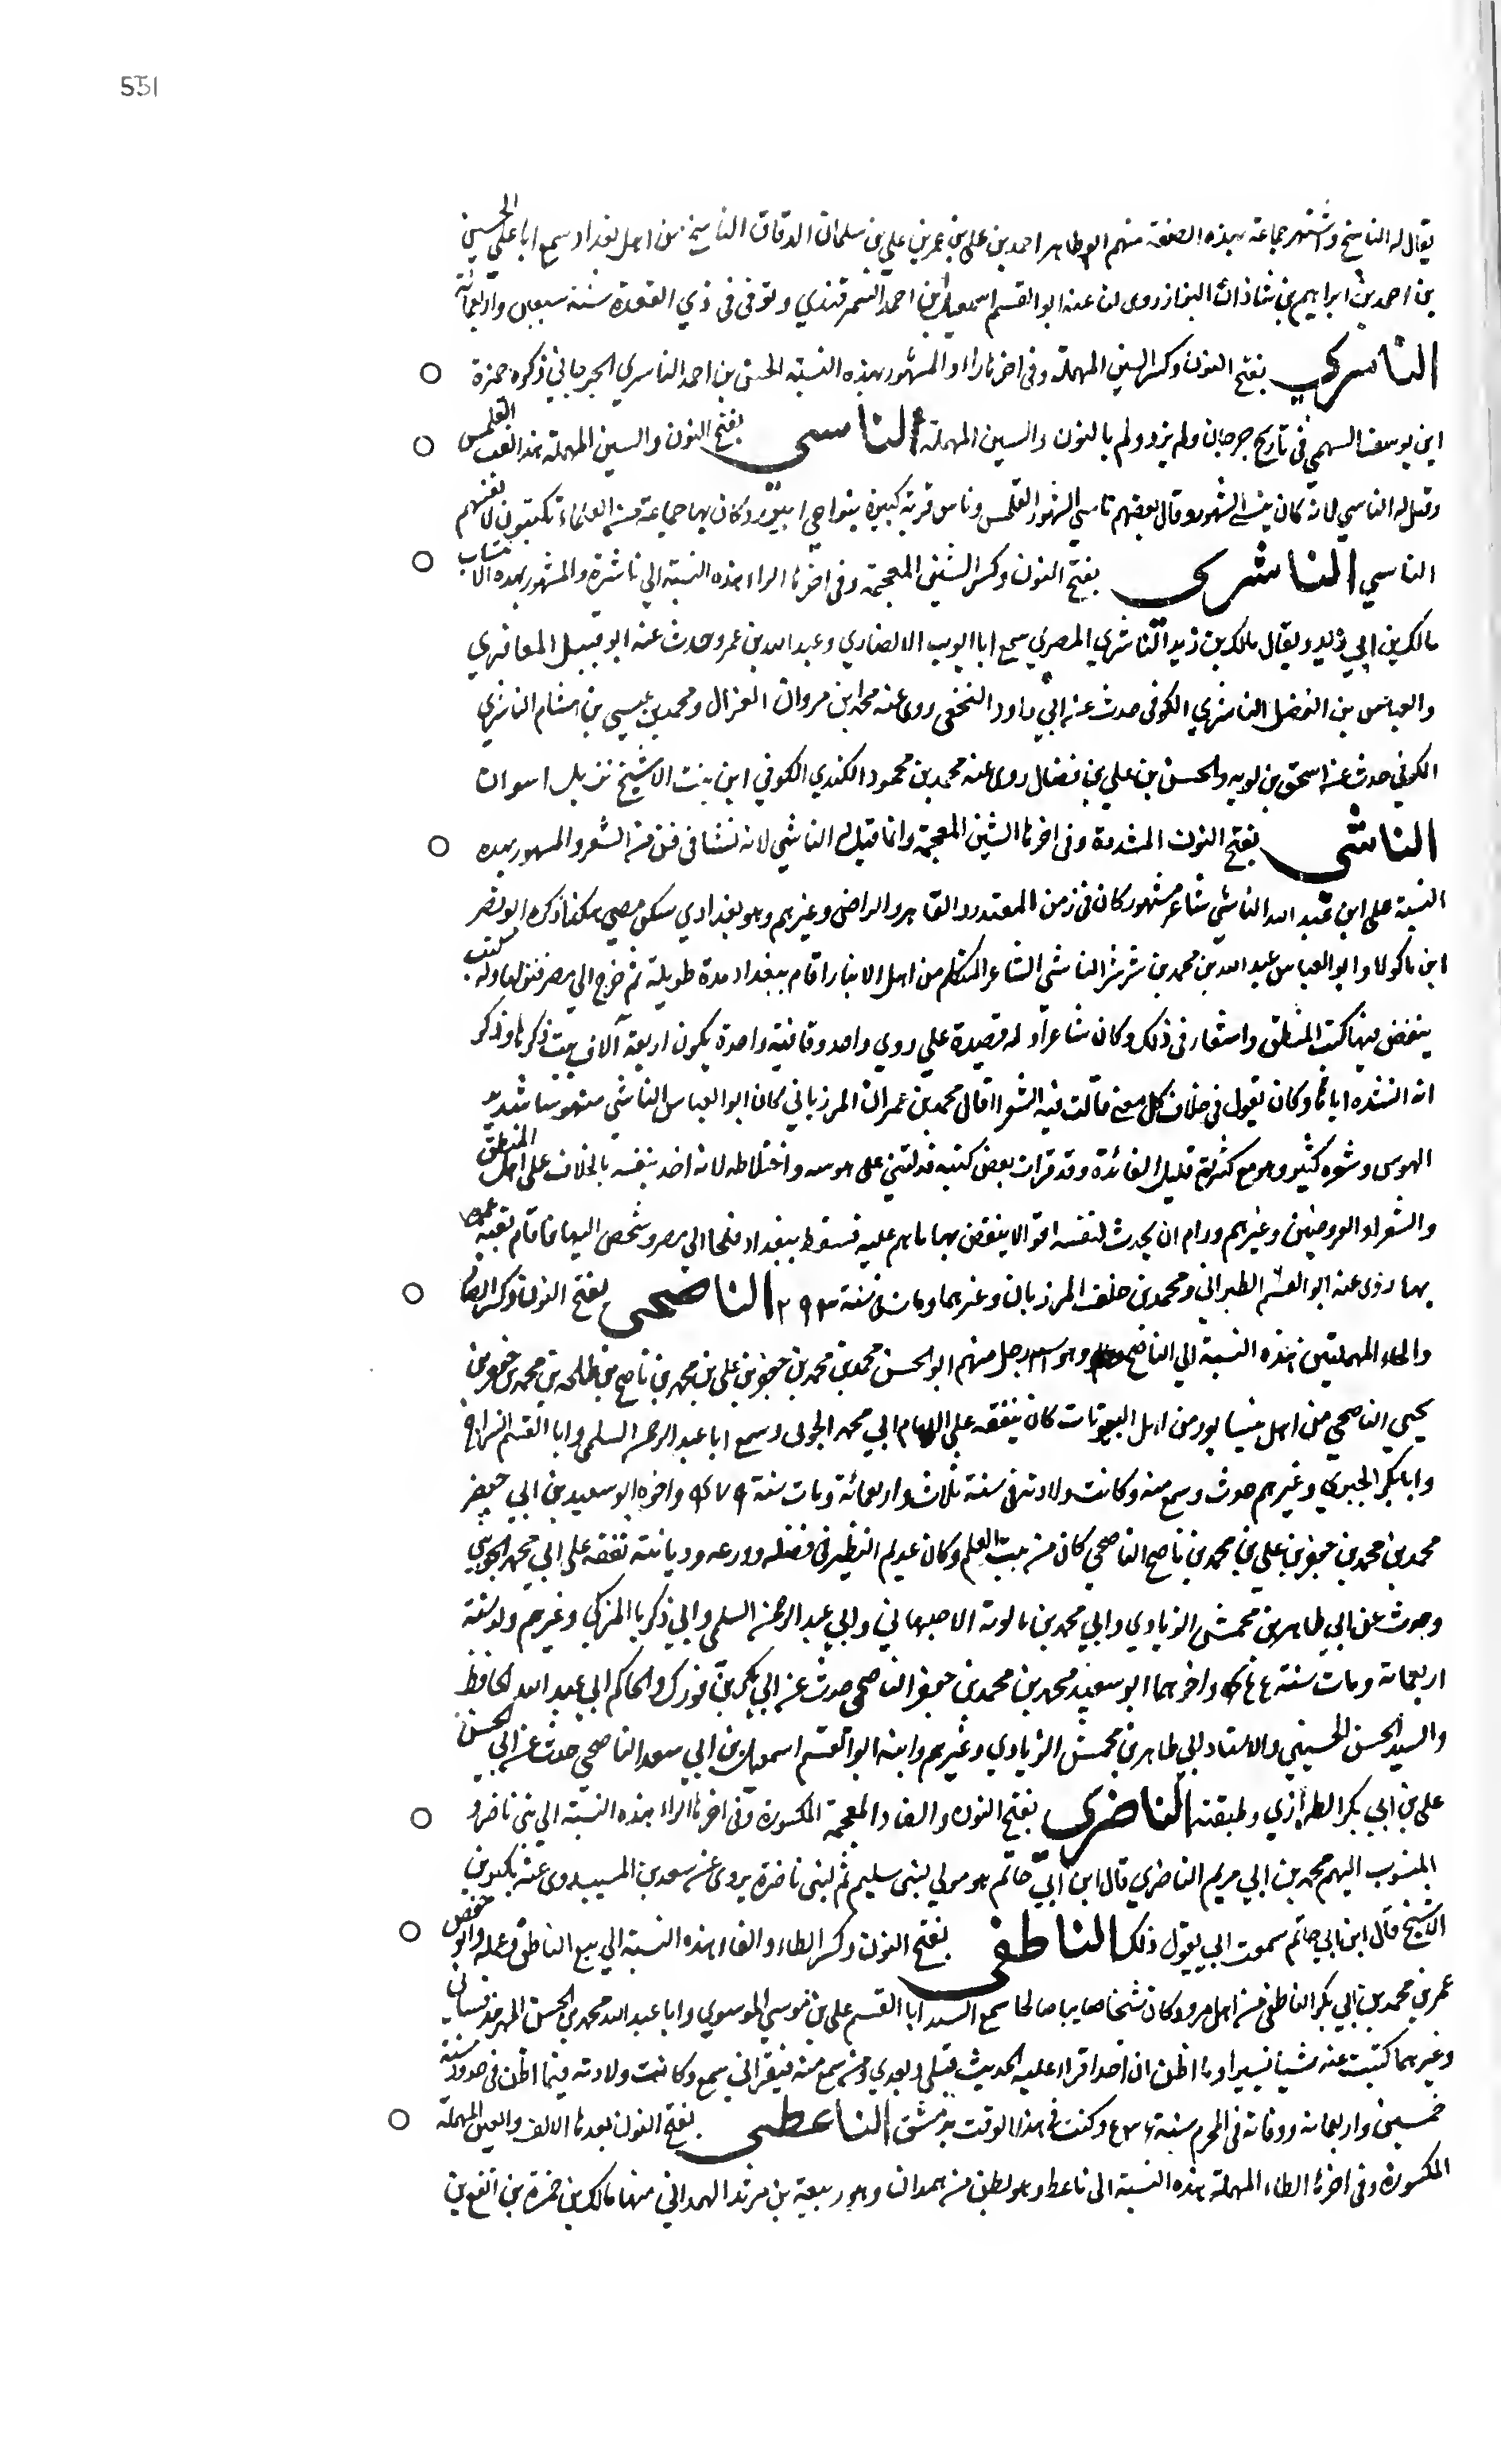 551
يقال له الناسخ واشتهر جماعة بهذه الصنعة منهم ابو طاهر احمد بن علي بن عمر بن علي بن سلمان الدقاق الناسخ من اهل بغداد سمع ابا علي الحسين
بن احمد بن ابراهيم بن شاذان البزاز روى لنا عنه ابو القسم اسمعيل بن احمد السمرقندي وتوفي في ذي القعدة سنة سبعين واربعمائة
الناسري بفتح النون وكسر السين المهملة وفي اخرها راء والمشهور بهذه النسبة الحسن بن احمد الناسري الجرجاني ذكره حمزة
ابن يوسف السهمي في تاريخ جرجان ولم يزد ولم بالنون والسين المهملة الناسي بفتح النون والسين المهملة هذا لقب القلمس
وقيل له الناسي لانه كان ينسئ الشهور وقال بعضهم ناسي الشهور القلمس وناس قرية كبيرة بنواحي ابيورد وكان بها جماعة من العلماء يكتبون لانفسهم
الناسي الناشري بفتح النون وكسر الشين المعجمة وفي اخرها الراء هذه النسبة الى ناشرة والمشهور بهذه الانتساب
مالك بن ابي زيد ويقال مالك بن زيد الناشري المصري سمع ابا ايوب الانصاري وعبد الله بن عمرو حدث عنه ابو قبيل المعافري
والعباس بن الفضل الناشري الكوفي حدث عن ابي داود النخعي روى عنه محمد بن مروان الغزال ومحمد بن عيسى بن هشام الناشري
الكوفي حدث عنه اسحق بن لويه والحسن بن علي بن فضال روى عنه محمد بن محمود الكندي الكوفي ابن بنت الاشج نزيل اسوان
الناشي بفتح النون المشددة وفي اخرها الشين المعجمة وانما قيل له الناشي لانه نشا في فن من الشعر والمشهور بهذه
النسبة علي ابن عبد الله الناشي شاعر مشهور كان في زمن المقتدر والقاهر والراضي وغيرهم وهو بغدادي سكن مصر هكذا ذكره ابو نصر
ابن ماكولا وابو العباس عبد الله بن محمد بن شرشر الناشي الشاعر المتكلم من اهل الانبار اقام ببغداد مدة طويلة ثم خرج الى مصر فنزلها وله كتب
ينقض فيها كتب المنطق واشعار في ذلك وكان شاعرا وله قصيدة علي روي واحد وقافية واحدة يكون اربعة آلاف بيت ذكرها وذكر
انه انشده اياها وكان يقول في خلاف كل معنى قالت فيه الشعراء قال محمد بن عمران المرزباني كان ابو العباس الناشي متهوسا شديد
الهوس وشعره كثير وهو مع كثرته قليل الفائدة وقد قرات بعض كتبه فدلتني على هوسه واختلاطه لانه اخذ نفسه بالخلاف على اهل المنطق
والشعراء والعروضيين وغيرهم ورام ان يحدث لنفسه اقوالا ينقض بها ما هم عليه فسقط ببغداد فلجا الى مصر وشخص اليها فاقام بقية عمره
بها روى عنه ابو القسم الطبراني ومحمد بن خلف المرزبان وغيرهما ومات في سنة ٢٩٣ الناصحي بفتح النون وكسر الصاد
والحاء المهملتين هذه النسبة الى الناصح وهو اسم رجل منهم ابو الحسن محمد بن محمد بن جعفر بن علي بن محمد بن ناصح بن طلحة بن محمد بن جعفر بن
يحيى الناصحي من اهل نيسابور من اهل البيوتات كان يتفقه علي الامام ابي محمد الجويني وسمع ابا عبد الرحمن السلمي وابا القسم السراج
وابا بكر الحيري وغيرهم حدث وسمع منه وكانت ولادته في سنة ثلاث واربعمائة ومات سنة ٤٧٩ واخوه ابو سعيد بن ابي جعفر
محمد بن محمد بن جعفر بن علي بن محمد بن ناصح الناصحي كان من بيت العلم وكان عديم النظير في فضله وورعه وديانته تفقه على ابي محمد الجويني
وحدث عن ابي طاهر بن محمش الزيادي وابي محمد بن بالوية الاصبهاني وابي عبد الرحمن السلمي وابي زكريا المزكي وغيرهم ولد سنة
اربعمائة ومات سنة واخوهما ابو سعيد محمد بن محمد بن جعفر الناصحي حدث عن ابي بكر بن فورك والحاكم ابي عبد الله الحافظ
والسيد الحسن الحسيني والاستاد ابي طاهر بن محمش الزيادي وغيرهم وابنه ابو القسم اسمعيل بن ابي سعد الناصحي حدث عن ابي الحسن
علي بن ابي بكر الطرازي وطبقته الناضري بفتح النون والضاد المعجمة المكسورة وفي اخرها الراء هذه النسبة الى بني ناضر و
المنسوب اليهم محمد بن ابي مريم الناضري قال ابن ابي حاتم هو مولى لبني سليم ثم لبني ناضرة يروي عن سعيد بن المسيب روى عنه بكير بن
الاشج قال ابن ابي حاتم سمعت ابي يقول ذلك الناطفي بفتح النون وكسر الطاء والفاء هذه النسبة الى بيع الناطف وعمله وابو حفص
عمر بن محمد بن ابي بكر الناطفي من اهل مرو وكان شيخا صالحا سمع السيد ابا القسم علي بن موسى الموسوي وابا عبد الله محمد بن الحسن المهربندقشاني
وغيرهما كتبت عنه شيئا يسيرا وما اظن ان احدا قرا عليه الحديث قبلي وبعدي ومن سمع منه فبقراتي سمع وكانت ولادته فيما اظن في حدود سنة
خمسين واربعمائة ووفاته في المحرم سنة وكنت في هذا الوقت بدمشق الناعطي بفتح النون بعدها الالف والعين المهملة
المكسورة وفي اخرها الطاء المهملة هذه النسبة الى ناعط وهو بطن من همدان وهو ربيعة بن مرثد الهمداني منها مالك بن حمزة بن انفع بن